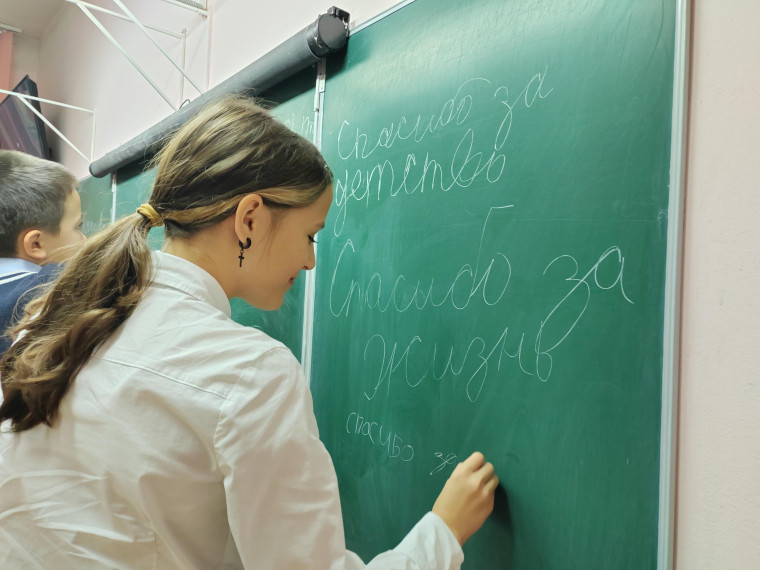 Спасибо за
детство
Спасибо за
жизнь
спасибо за